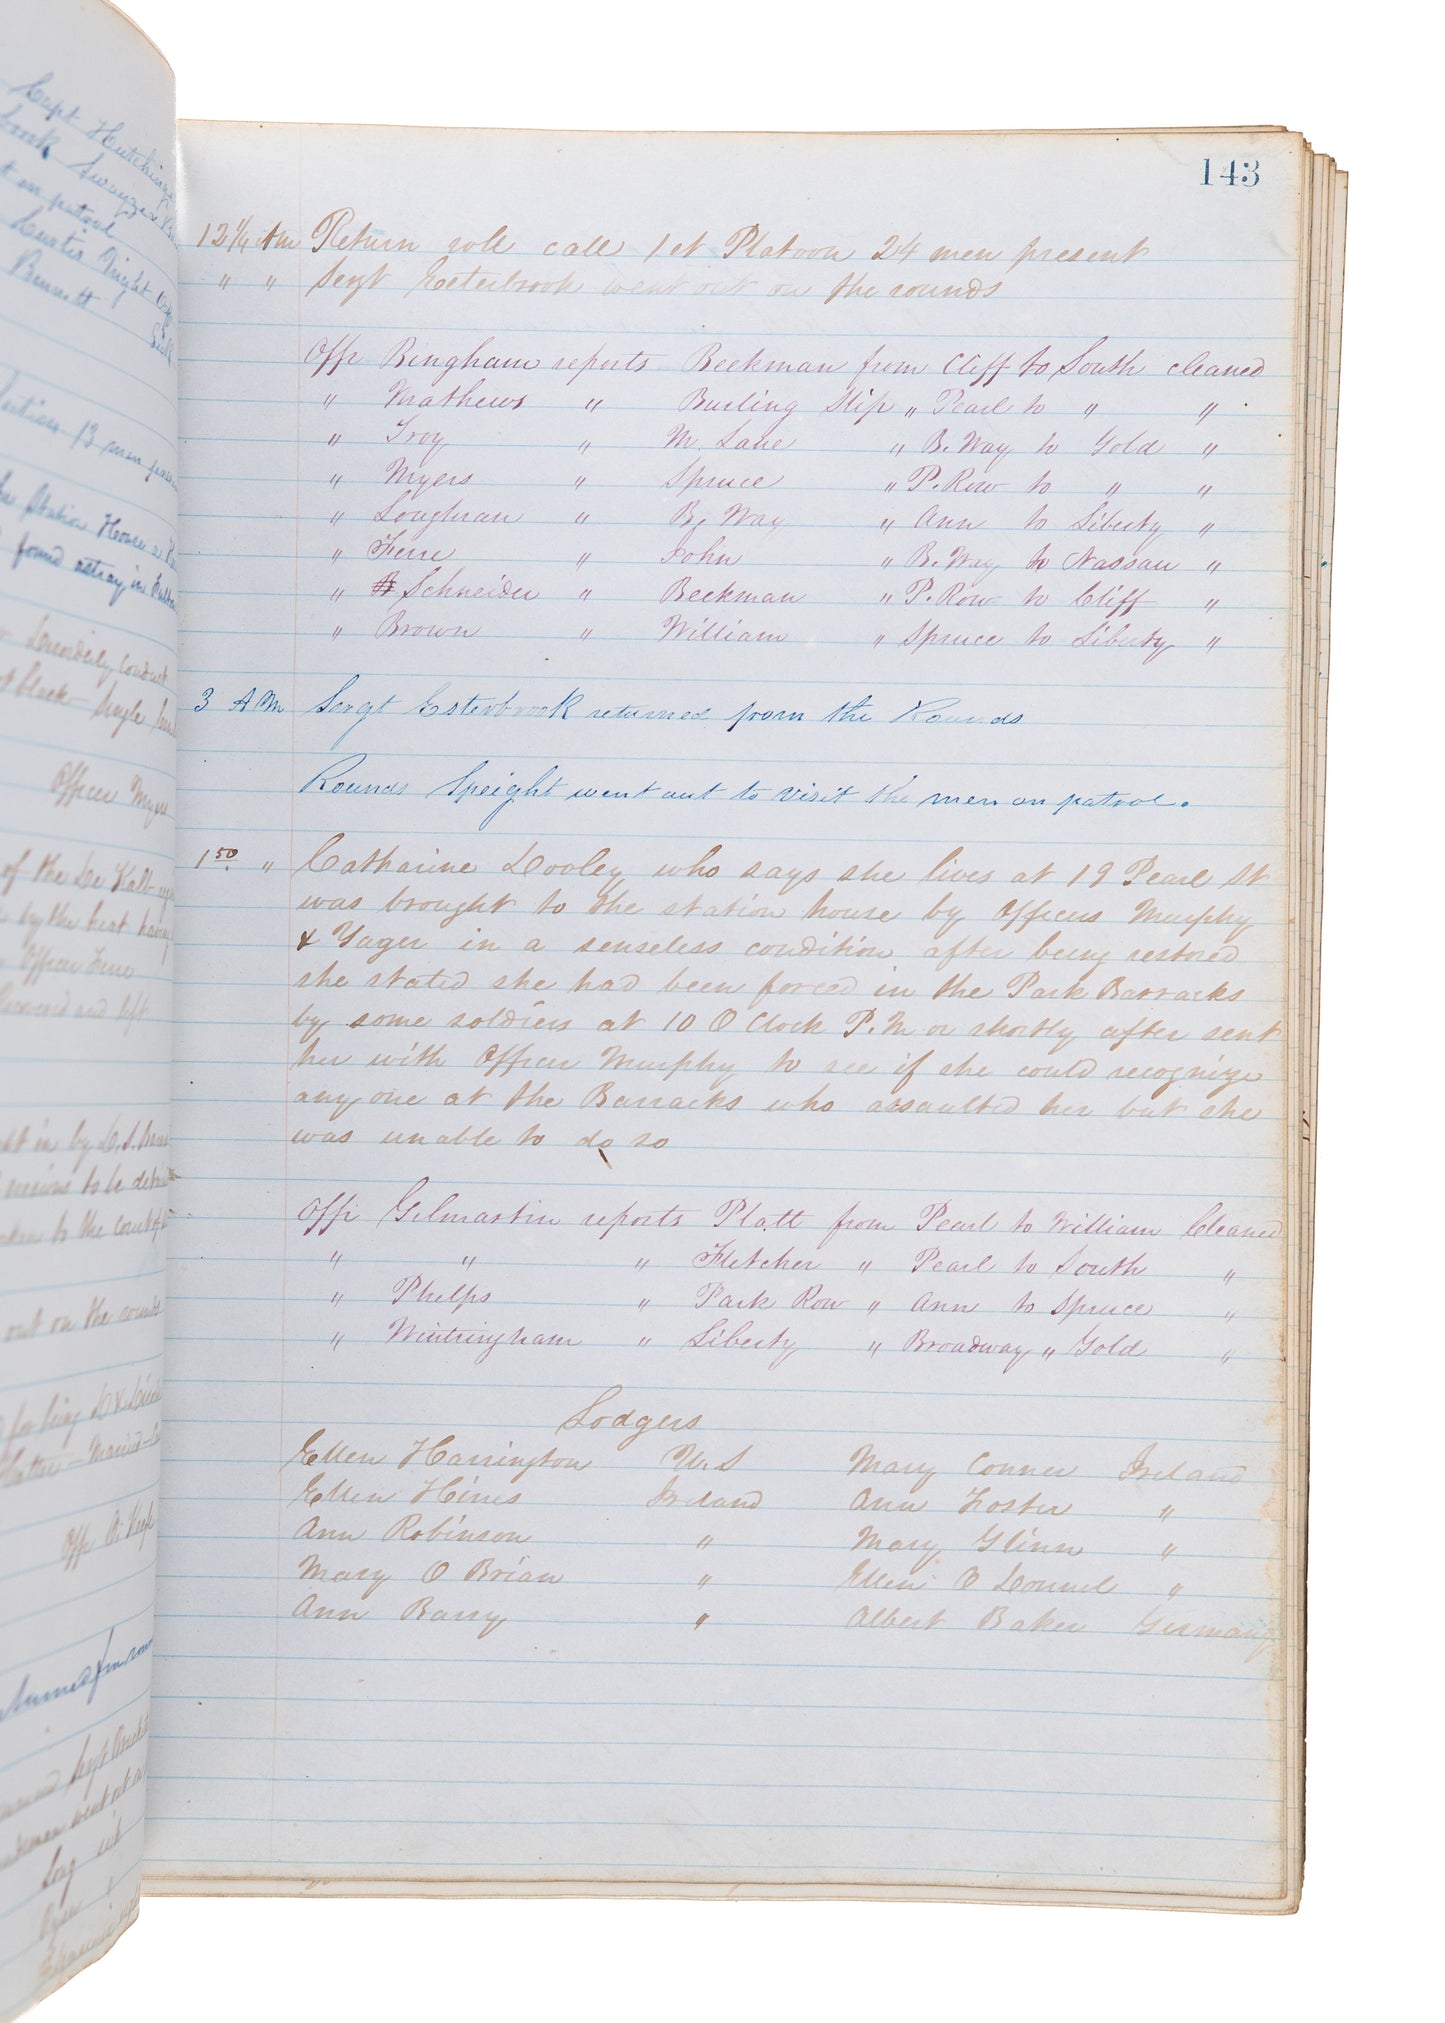 Capt Hutchings
on patrol
Bennett
Sick
13 men
Station House a
found astray in
Disorderly conduct
black - Single
Officer Myers
of the De Kalb
by the heat having
Officer Ferre
Recovered and left
in by
to be
to the Court
out on the rounds
for being
Married
Offr O. Keefe
Sergt
went out
Long sick
143
12 1/4 Am Return roll call 1st Platoon 24 men present
" " Sergt Esterbrook went out on the rounds
Offr Bingham reports Beekman from Cliff to South cleaned
" Mathews " Burling Slip " Pearl to " "
" Troy " M. Lane " B. Way to Gold "
" Myers " Spruce " P. Row to " "
" Loughran " B. Way " Ann to Liberty "
" Ferre " John " B. Way to Nassau "
" Schneider " Beekman " P. Row to Cliff "
" Brown " William " Spruce to Liberty "
3 A M Sergt Esterbrook returned from the Rounds
Rounds Speight went out to visit the men on patrol.
1 50 " Catharine Dooley who says she lives at 19 Pearl St
was brought to the station house by Officers Murphy
& Yager in a senseless condition after being restored
she stated she had been forced in the Park Barracks
by some soldiers at 10 O Clock P. M or shortly after sent
her with Officer Murphy to see if she could recognize
any one at the Barracks who assaulted her but she
was unable to do so
Offr Gilmartin reports Platt from Pearl to William Cleaned
" " " Fletcher " Pearl to South "
" Phelps " Park Row " Ann to Spruce "
" Wintringham " Liberty " Broadway " Gold "
Lodgers
Ellen Harrington U. S Mary Conner Ireland
Ellen Hines Ireland Ann Foster "
Ann Robinson " Mary Glinn "
Mary O Brian " Ellen O Donnel "
Ann Barry " Albert Baker Germany